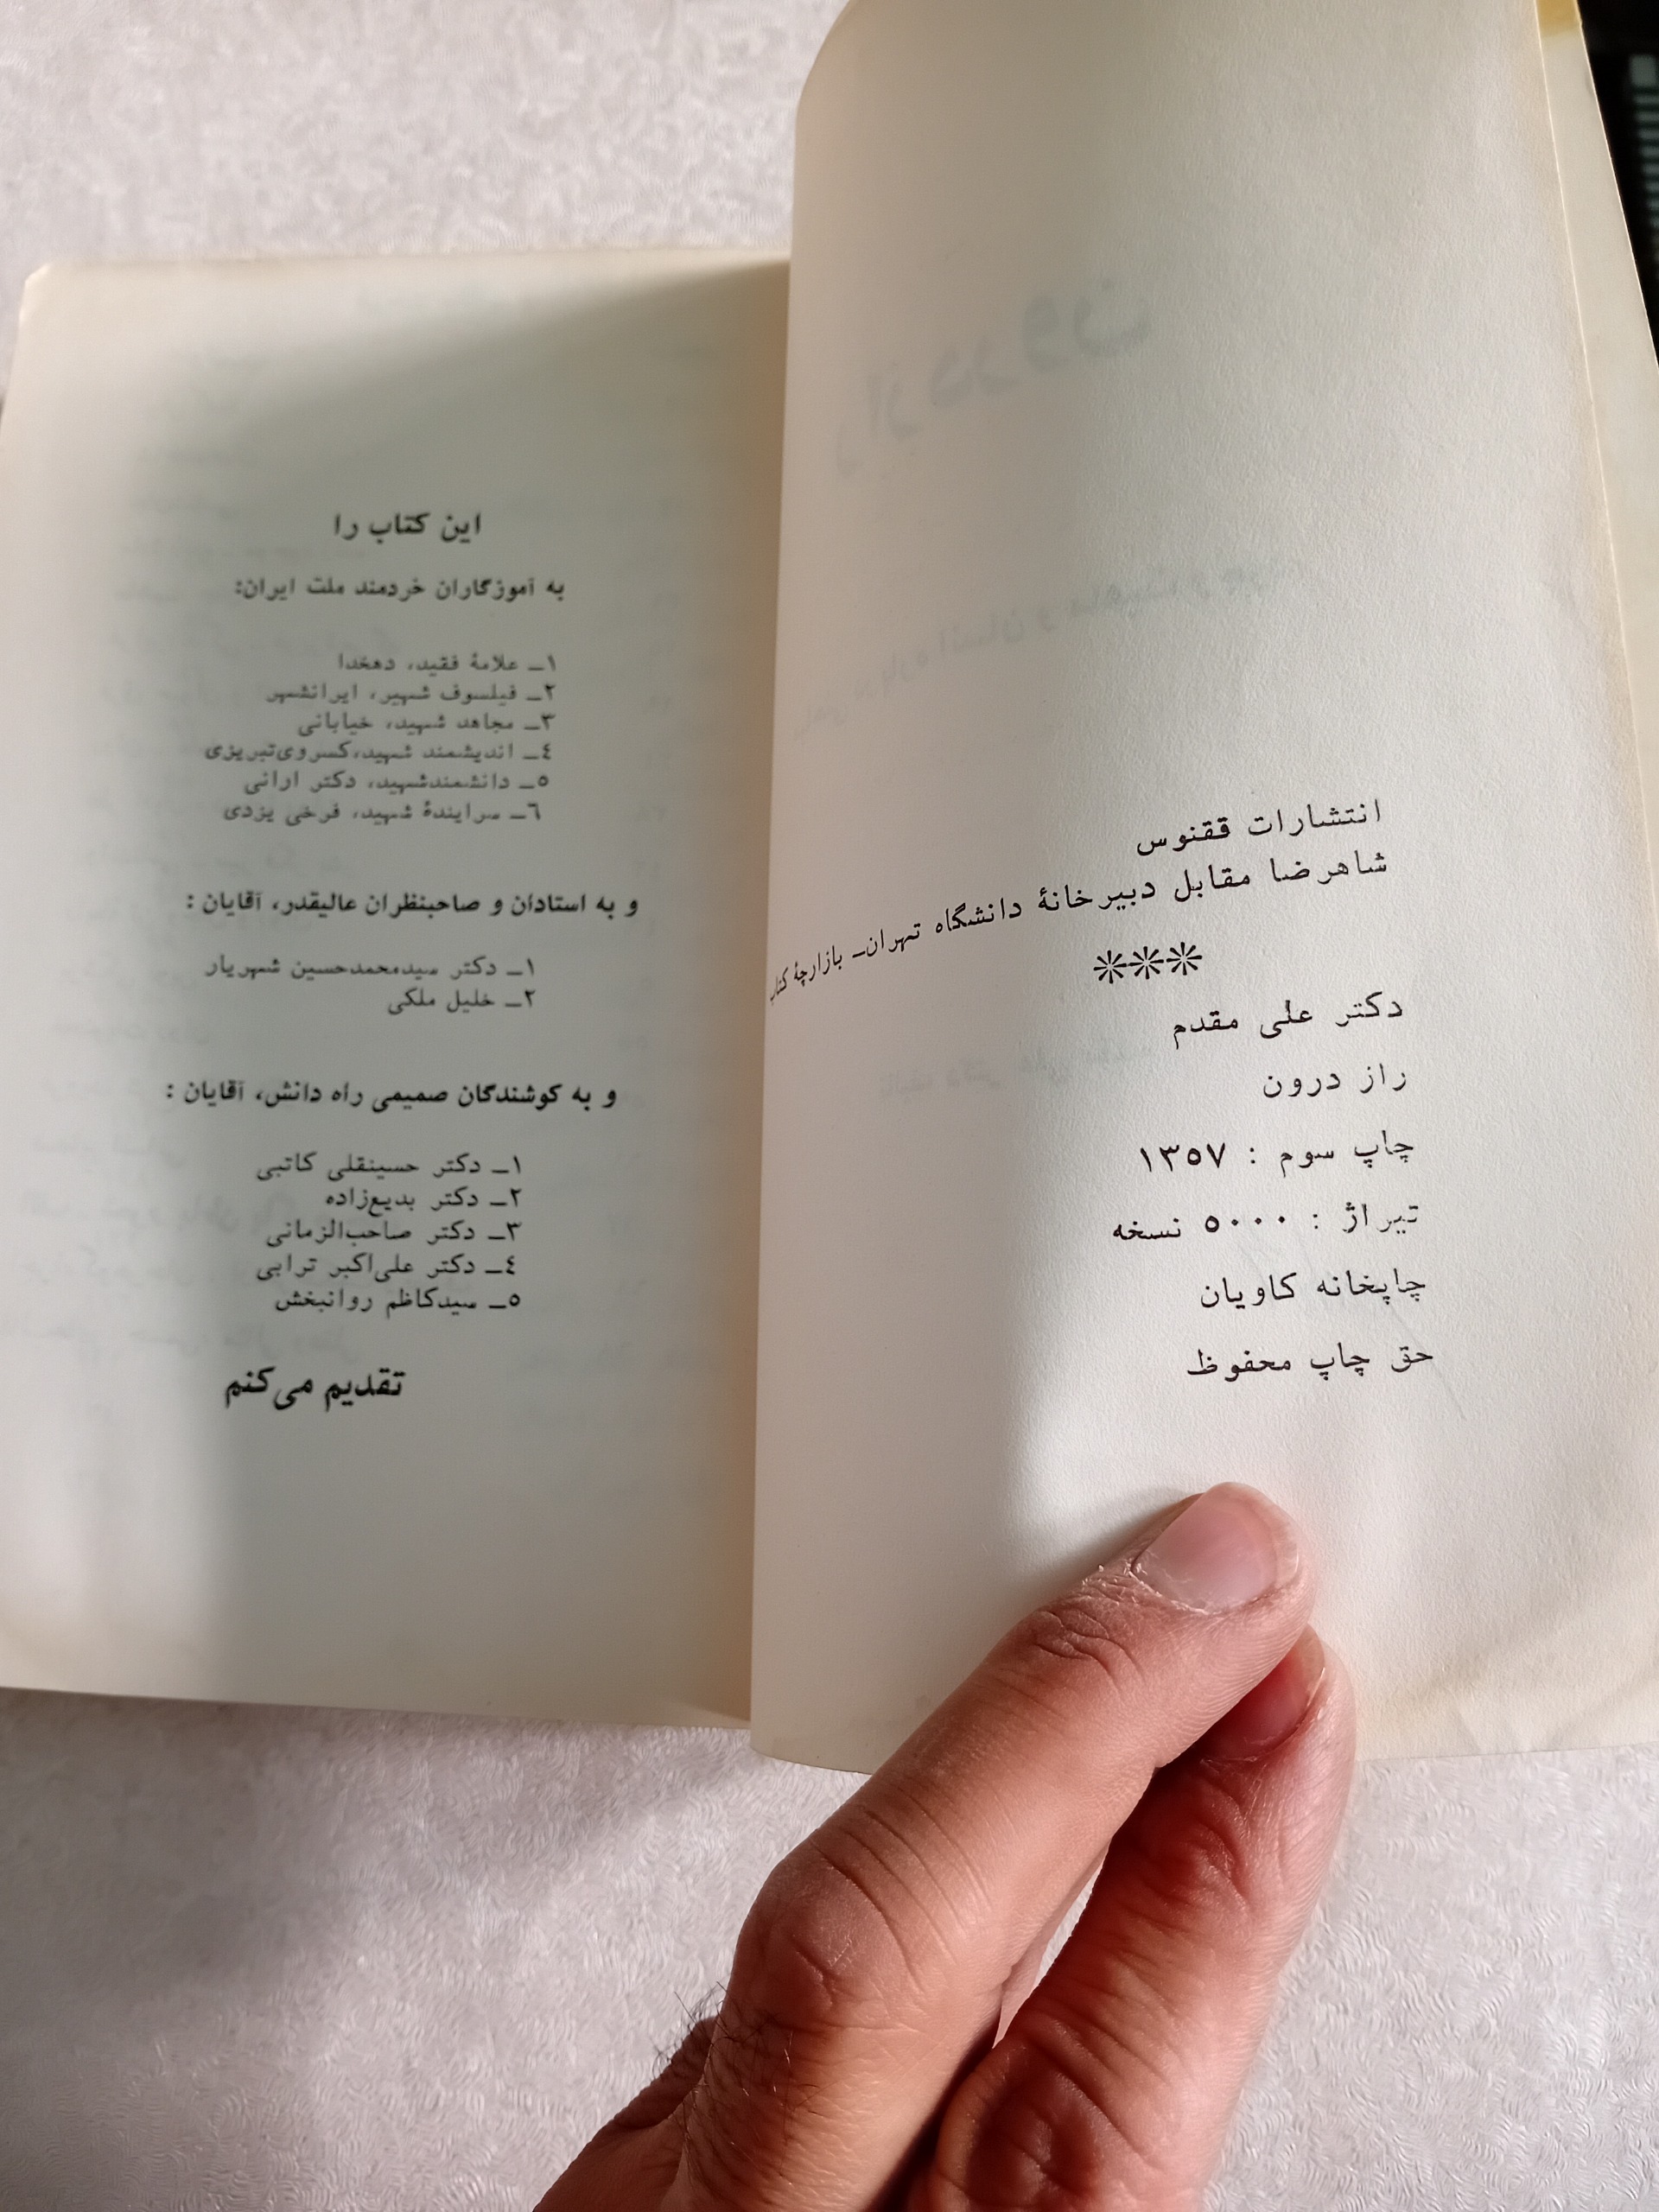 انتشارات ققنوس
شاهرضا مقابل دبیرخانهٔ دانشگاه تهران_ بازارچهٔ کتاب
***
دکتر علی مقدم
راز درون
چاپ سوم : ۱۳۵۷
تیراژ : ۵۰۰۰ نسخه
چاپخانه کاویان
حق چاپ محفوظ
این کتاب را
به آموزگاران خردمند ملت ایران:
۱_ علامهٔ فقید، دهخدا
۲_ فیلسوف شهیر، ایرانشهر
۳_ مجاهد شهید، خیابانی
٤_ اندیشمند شهید،کسروی‌تبریزی
۵_ دانشمندشهید، دکتر ارانی
٦_ سرایندهٔ شهید، فرخی یزدی
و به استادان و صاحبنظران عالیقدر، آقایان :
۱_ دکتر سیدمحمدحسین شهریار
۲_ خلیل ملکی
و به کوشندگان صمیمی راه دانش، آقایان :
۱_ دکتر حسینقلی کاتبی
۲_ دکتر بدیع‌زاده
۳_ دکتر صاحب‌الزمانی
٤_ دکتر علی‌اکبر ترابی
۵_ سیدکاظم روانبخش
تقدیم می‌کنم